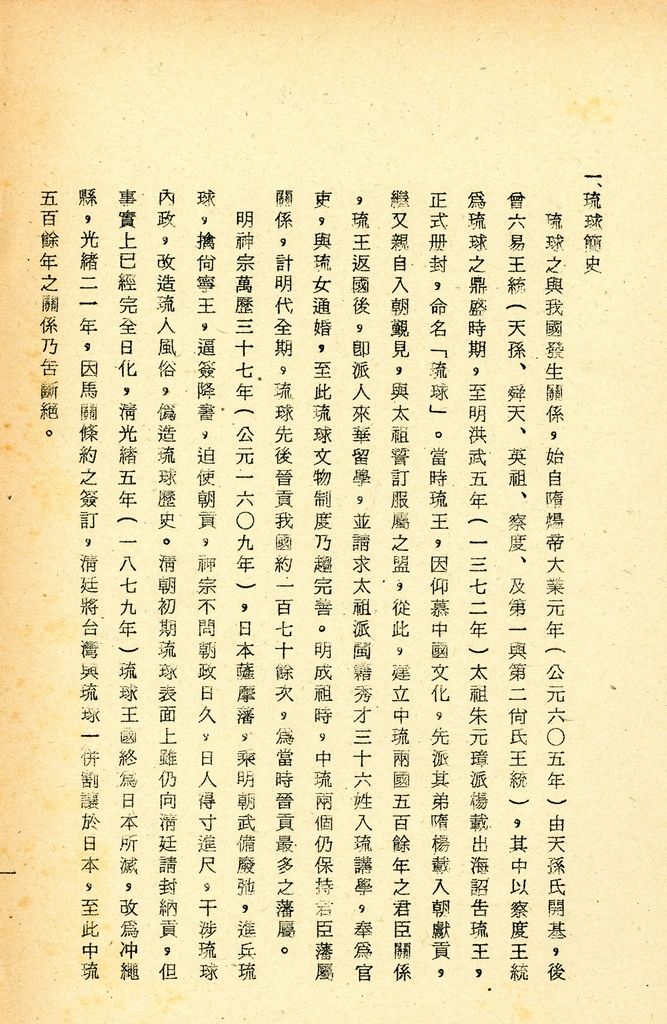 一、琉球簡史
琉球之與我國發生關係，始自隋煬帝大業元年（公元六〇五年）由天孫氏開基，後
曾六易王統（天孫、舜天、英祖、察度、及第一與第二尙氏王統），其中以察度王統
爲琉球之鼎盛時期，至明洪武五年（一三七二年）太祖朱元璋派楊載出海詔告琉王，
正式册封，命名「琉球」。當時琉王，因仰慕中國文化，先派其弟隋楊載入朝獻貢，
繼又親自入朝覲見，與太祖誓訂服屬之盟，從此，建立中琉兩國五百餘年之君臣關係
，琉王返國後，卽派人來華留學，並請求太祖派閩籍秀才三十六姓入琉講學，奉爲官
吏，與琉女通婚，至此琉球文物制度乃趨完善。明成祖時，中琉兩個仍保持君臣藩屬
關係，計明代全期，琉球先後晉貢我國約一百七十餘次，爲當時晉貢最多之藩屬。
明神宗萬歷三十七年（公元一六〇九年），日本薩摩藩，乘明朝武備廢弛，進兵琉
球，擒尙寧王，逼簽降書，迫使朝貢，神宗不問朝政日久，日人得寸進尺，干涉琉球
內政，改造琉人風俗，僞造琉球歷史。淸朝初期琉球表面上雖仍向淸廷請封納貢，但
事實上已經完全日化，淸光緖五年（一八七九年）琉球王國終爲日本所滅，改爲冲繩
縣，光緖二一年，因馬關條約之簽訂，淸廷將台灣與琉球一併割讓於日本，至此中琉
五百餘年之關係乃告斷絕。